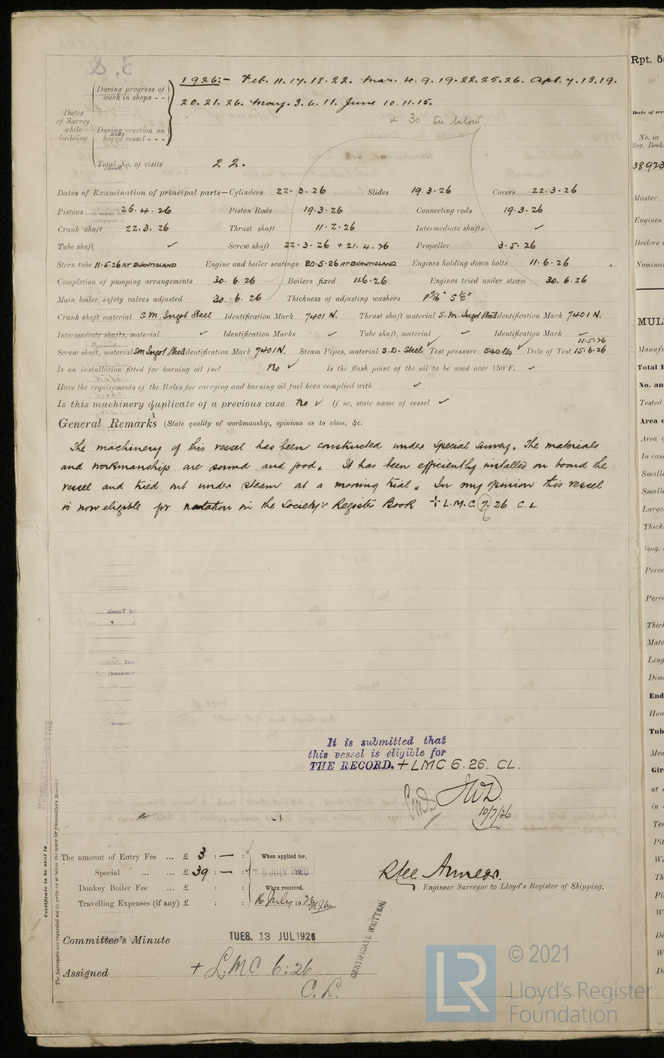 1926:- Feb. 11. 17. 18. 22. Mar. 4. 9. 19. 22. 25. 26. Apl. 7. 13. 19.
During progress of work in shops - -
20. 21. 26. May. 3. 6. 11. June 10. 11. 15.
& 30 See below
Dates of Survey while building
During erection on board vessel - - -
Total No. of visits 22.
Dates of Examination of principal parts—Cylinders 22.3.26 Slides 19.3.26 Covers 22.3.26
Pistons 26.4.26 Piston Rods 19.3.26 Connecting rods 19.3.26
Crank shaft 22.3.26 Thrust shaft 11.2.26 Intermediate shafts ✓
Tube shaft ✓ Screw shaft 22.3.26 & 21.4.26 Propeller 3.5.26
Stern tube 11.5.26 AT BURNTISLAND Engine and boiler seatings 20.5.26 AT BURNTISLAND Engines holding down bolts 11.6.26
Completion of pumping arrangements 30.6.26 Boilers fixed 11.6.26 Engines tried under steam 30.6.26
Main boiler safety valves adjusted 30.6.26 Thickness of adjusting washers
Crank shaft material S.M. Ingot Steel Identification Mark 7401 N. Thrust shaft material S.M. Ingot Steel Identification Mark 7401 N.
Intermediate shafts, material ✓ Identification Marks ✓ Tube shaft, material ✓ Identification Mark ✓
11.5.26
Screw shaft, material S.M. Ingot Steel Identification Mark 7401 N. Steam Pipes, material S.D. Steel Test pressure 540 lb Date of Test 15.6.26
Is an installation fitted for burning oil fuel No ✓ Is the flash point of the oil to be used over 150°F. ✓
Have the requirements of the Rules for carrying and burning oil fuel been complied with ✓
Is this machinery duplicate of a previous case No ✓ If so, state name of vessel ✓
General Remarks (State quality of workmanship, opinions as to class, &c.
The machinery of this vessel has been constructed under special survey. The materials
and workmanship are sound and good. It has been efficiently installed on board the
vessel and tried out under steam at a mooring trial. In my opinion this vessel
is now eligible for notation in the Society's Register Book + L.M.C. 7.26 C.L
6
It is submitted that
this vessel is eligible for
THE RECORD. + LMC 6.26. CL.
10/7/26
The amount of Entry Fee ... £ 3 : — :
When applied for,
Special ... £ 39 : — :
JULY 1926
Donkey Boiler Fee ... £ : :
When received,
Travelling Expenses (if any) £ : :
16 July 1926
Engineer Surveyor to Lloyd's Register of Shipping.
Committee's Minute TUES. 13 JUL 1926
Assigned + LMC 6:26
C.L.
CERTIFICATE WRITTEN
Certificate to be sent to
The Surveyors are requested not to write on or below the space for Committee's Minute.
Rpt. 5
© 2021
LR
Lloyd's Register
Foundation